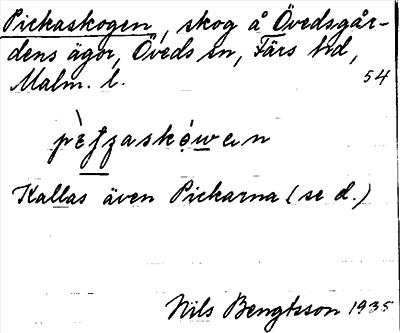 Pickaskogen, skog å Övedsgår-
dens ägor, Öveds sn, Färs hd,
Malm. l. 54
Kallas även Pickarna (se d.)
Nils Bengtsson 1935